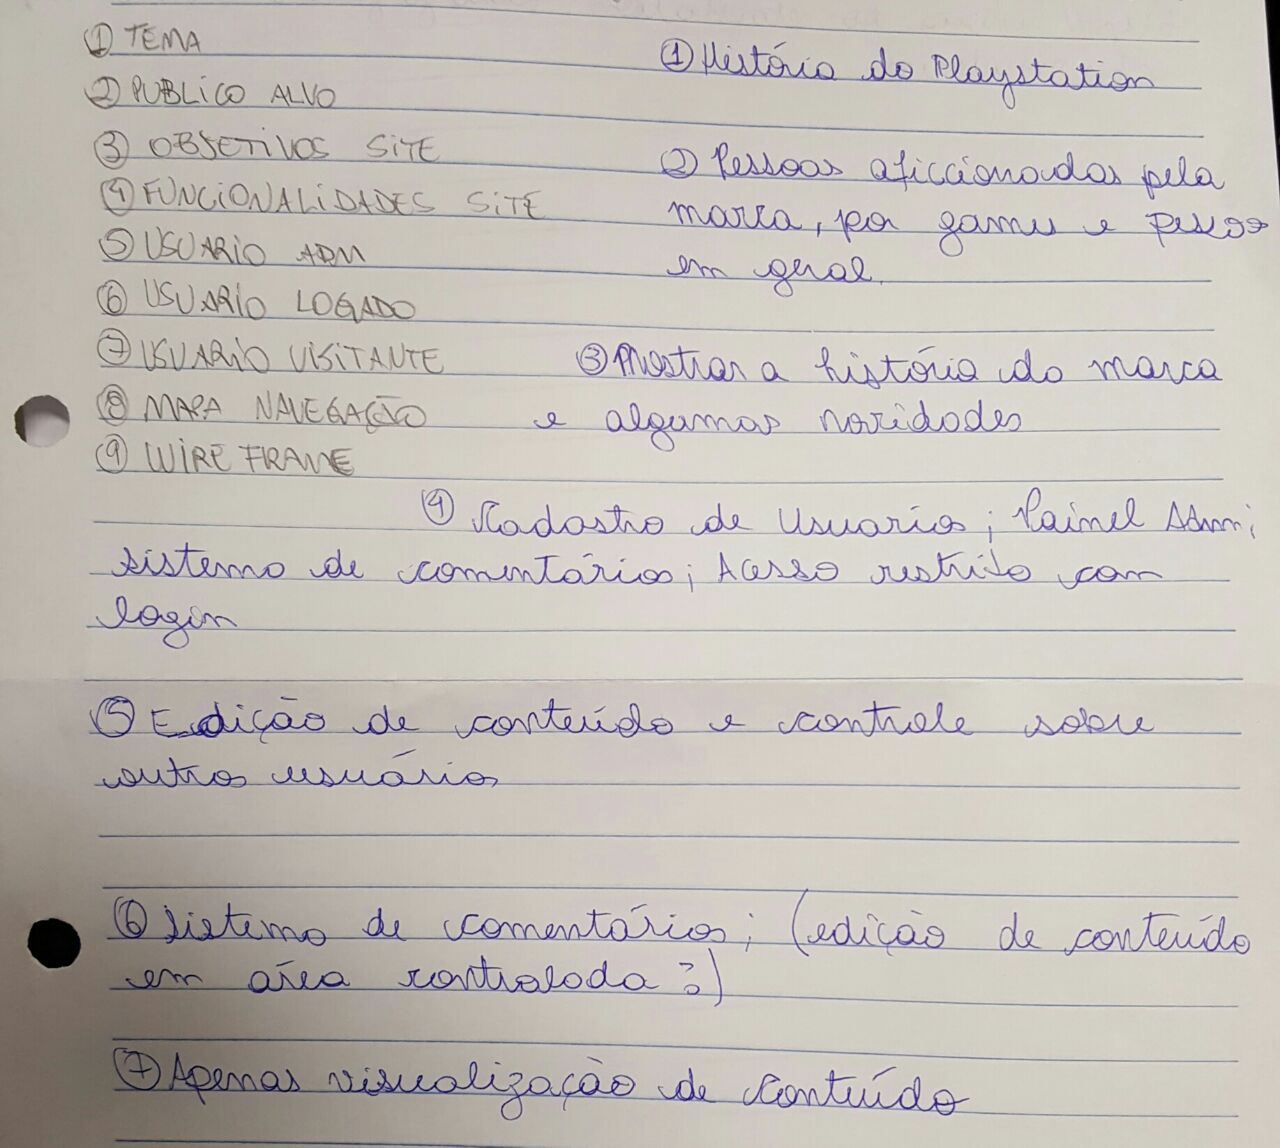 ① TEMA
② PUBLICO ALVO
③ OBJETIVOS SITE
④ FUNCIONALIDADES SITE
⑤ USUARIO ADM
⑥ USUARIO LOGADO
⑦ USUARIO VISITANTE
⑧ MAPA NAVEGAÇÃO
⑨ WIRE FRAME
① História do Playstation
② Pessoas aficcionadas pela
marca, por games e pessoas
em geral.
③ Mostrar a história da marca
e algumas novidades
④ Cadastro de Usuarios; Painel Adm;
sistema de comentários; Acesso restrito com
login
⑤ Edição de conteúdo e controle sobre
outros usuários
⑥ Sistema de comentários; (edição de conteúdo
em área controlada?)
⑦ Apenas visualização de conteúdo